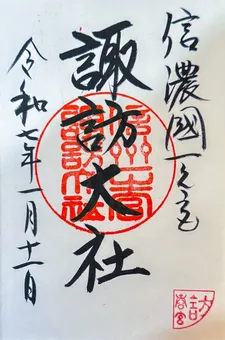 信濃國一之宮
諏訪大社
令和七年一月十一日